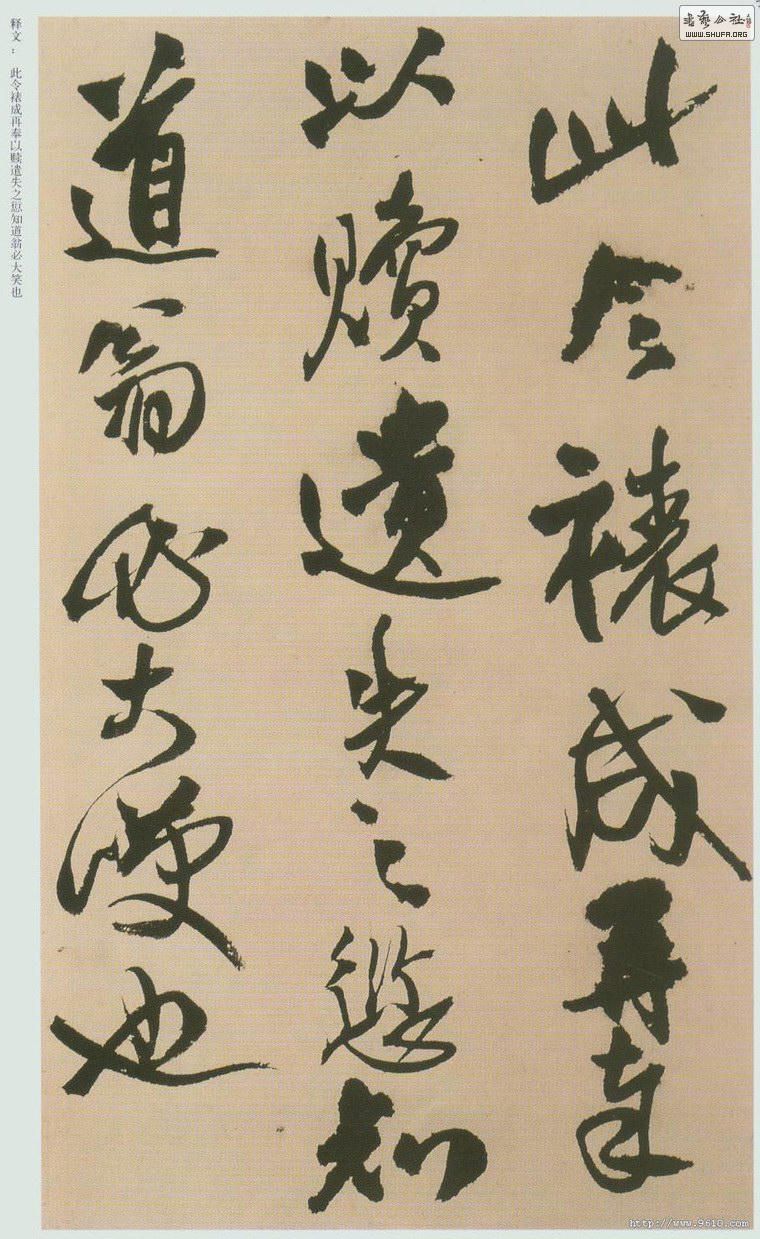 书艺公社
WWW.SHUFA.ORG
释文： 此令裱成再奉以赎遗失之愆知道翁必大笑也
此令裱成再奉
以贖遺失之愆知
道翁必大笑也
http://www.9610.com